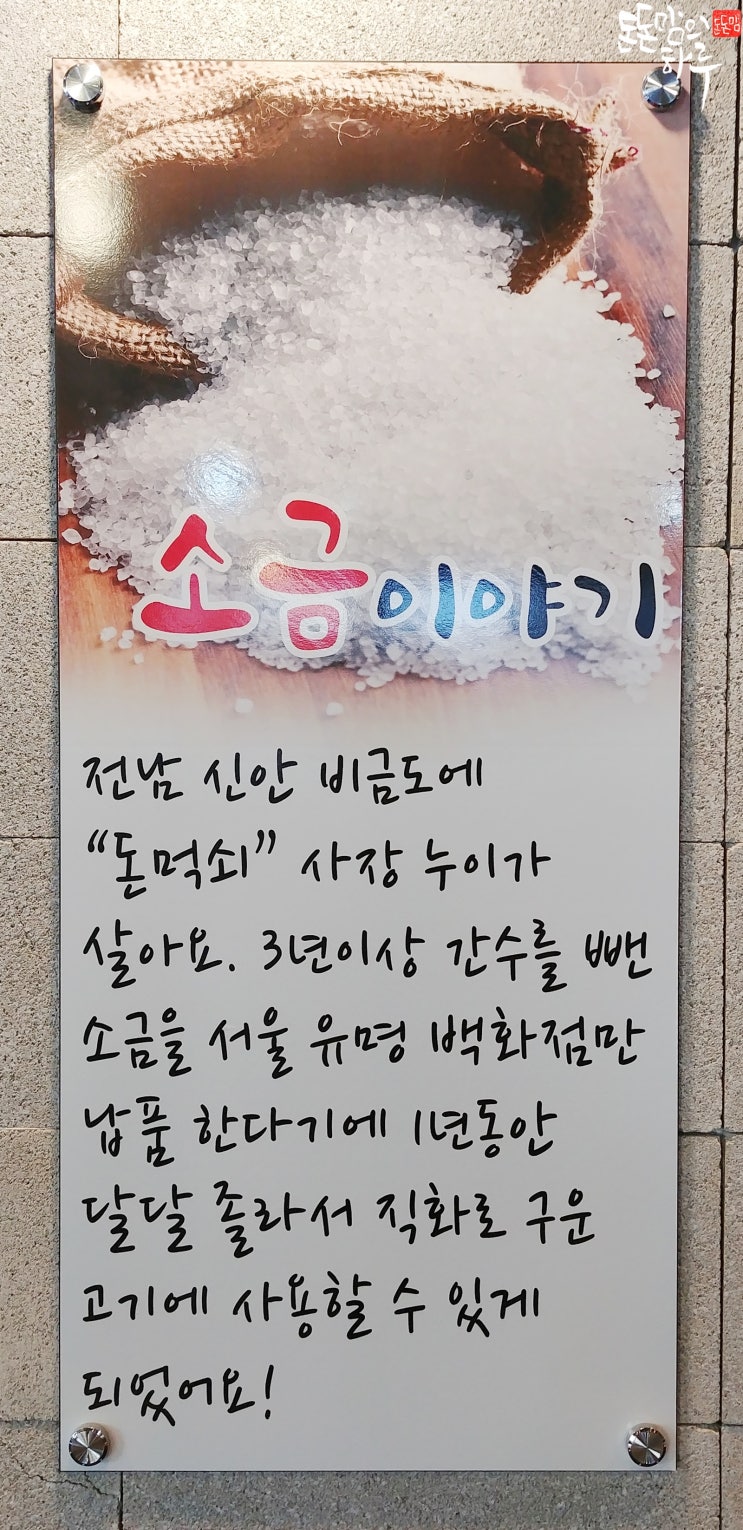 돈돈맘의
하루
돈돈맘
소금이야기
전남 신안 비금도에
“돈먹쇠” 사장 누이가
살아요. 3년이상 간수를 뺀
소금을 서울 유명 백화점만
납품 한다기에 1년동안
달달 졸라서 직화로 구운
고기에 사용할 수 있게
되었어요!